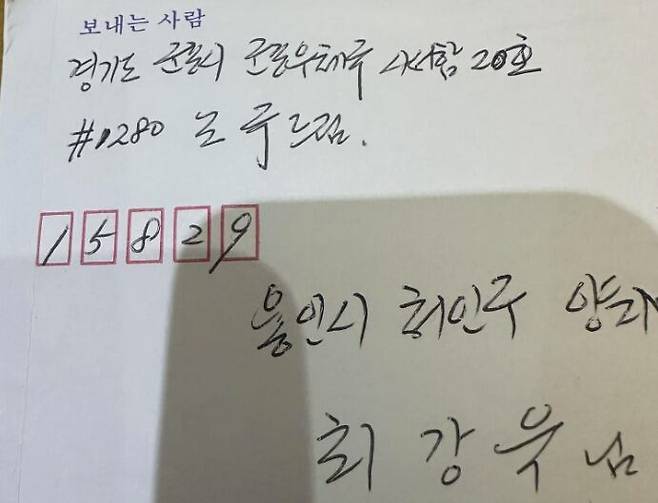 보내는 사람
경기도 군포시 군포우체국 사서함 20호
#1280 조 국 드림.
15829
용인시 처인구 양지
최 강 욱 님